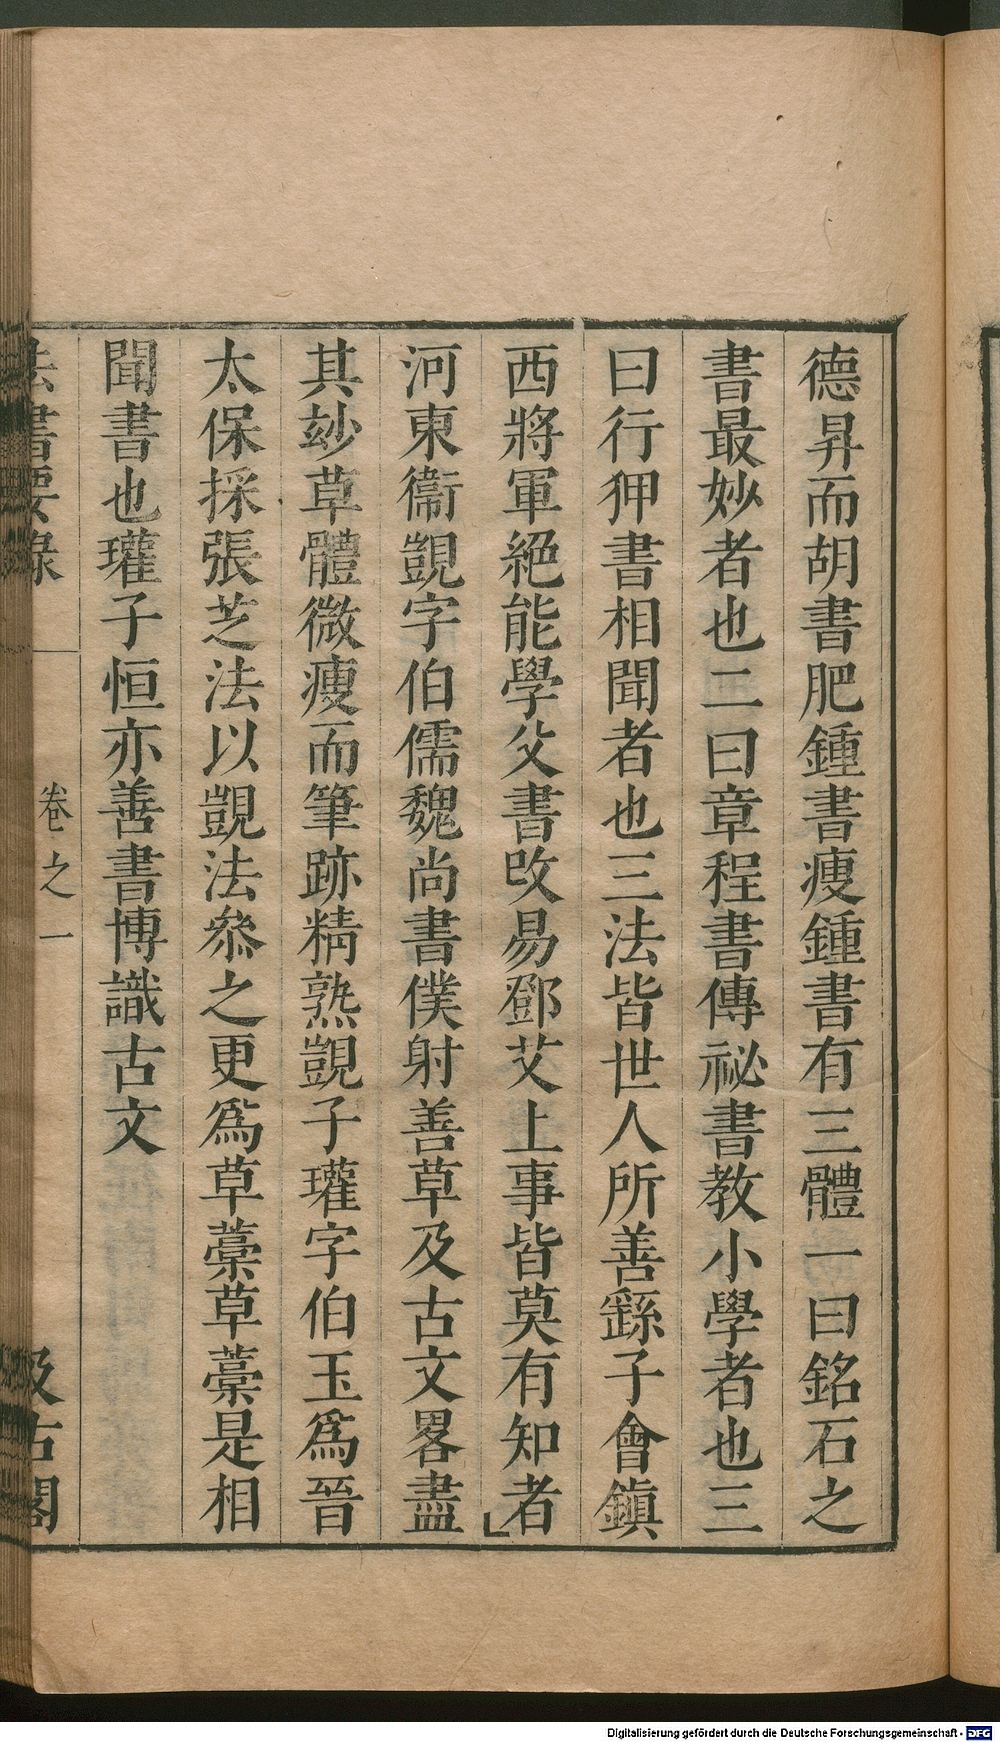 德昇而胡書肥鍾書瘦鍾書有三體一曰銘石之
書最妙者也二曰章程書傳祕書教小學者也三
曰行狎書相聞者也三法皆世人所善繇子會鎮
西將軍絕能學父書改易鄧艾上事皆莫有知者
河東衞覬字伯儒魏尚書僕射善草及古文畧盡
其玅草體微瘦而筆跡精熟覬子瓘字伯玉爲晉
太保採張芝法以覬法叅之更爲草藳草藳是相
聞書也瓘子恒亦善書博識古文
法書要錄
卷之一
汲古閣
Digitalisierung gefördert durch die Deutsche Forschungsgemeinschaft - DFG